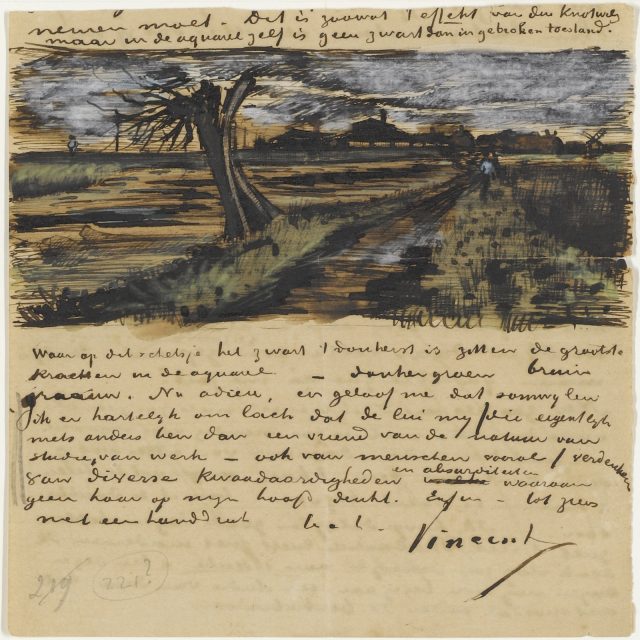 nemen moet. Dit is zoowat 't effekt van den Knotwilg
maar in de aquarel zelf is geen zwart dan in gebroken toestand.
Waar op dit schetsje het zwart 't donkerst is zitten de grootste
krachten in de aquarel — donkergroen bruin
graauw. Nu adieu, en geloof me dat somwylen
ik er hartelyk om lach dat de lui my die eigentlyk
niets anders ben dan een vriend van de natuur van
studie, van werk – ook van menschen vooral / verdenken
van diverse kwaadaardigheden en absurditeiten waaraan
geen haar op myn hoofd denkt. Enfin – tot ziens
met een handdruk t. à t.
Vincent
219 221?